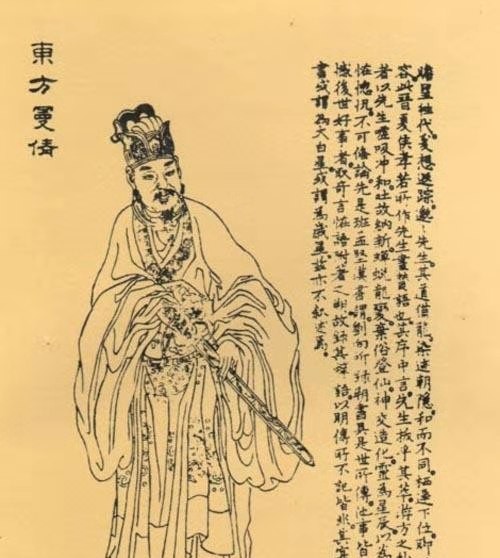 東方曼倩
瞻望往代爰想遐踪邈〻先生其道猶龍染迹朝隱和而不同栖遲下位聊
容此晉夏侯孝若所作先生畫贊語也其序中言先生拔乎其萃游方之
者以先生噓吸冲和吐故納新蟬蛻龍變棄俗登仙神交造化靈為星辰以為
恠惚恍不可備論先是班孟堅漢書謂劉向所錄朔書具是世所傳他事皆
後世好事者取奇言恠語附著之朔故錄其語以明傳所不記皆非其
書或謂為太白星或謂為歲星茲亦不敘述焉